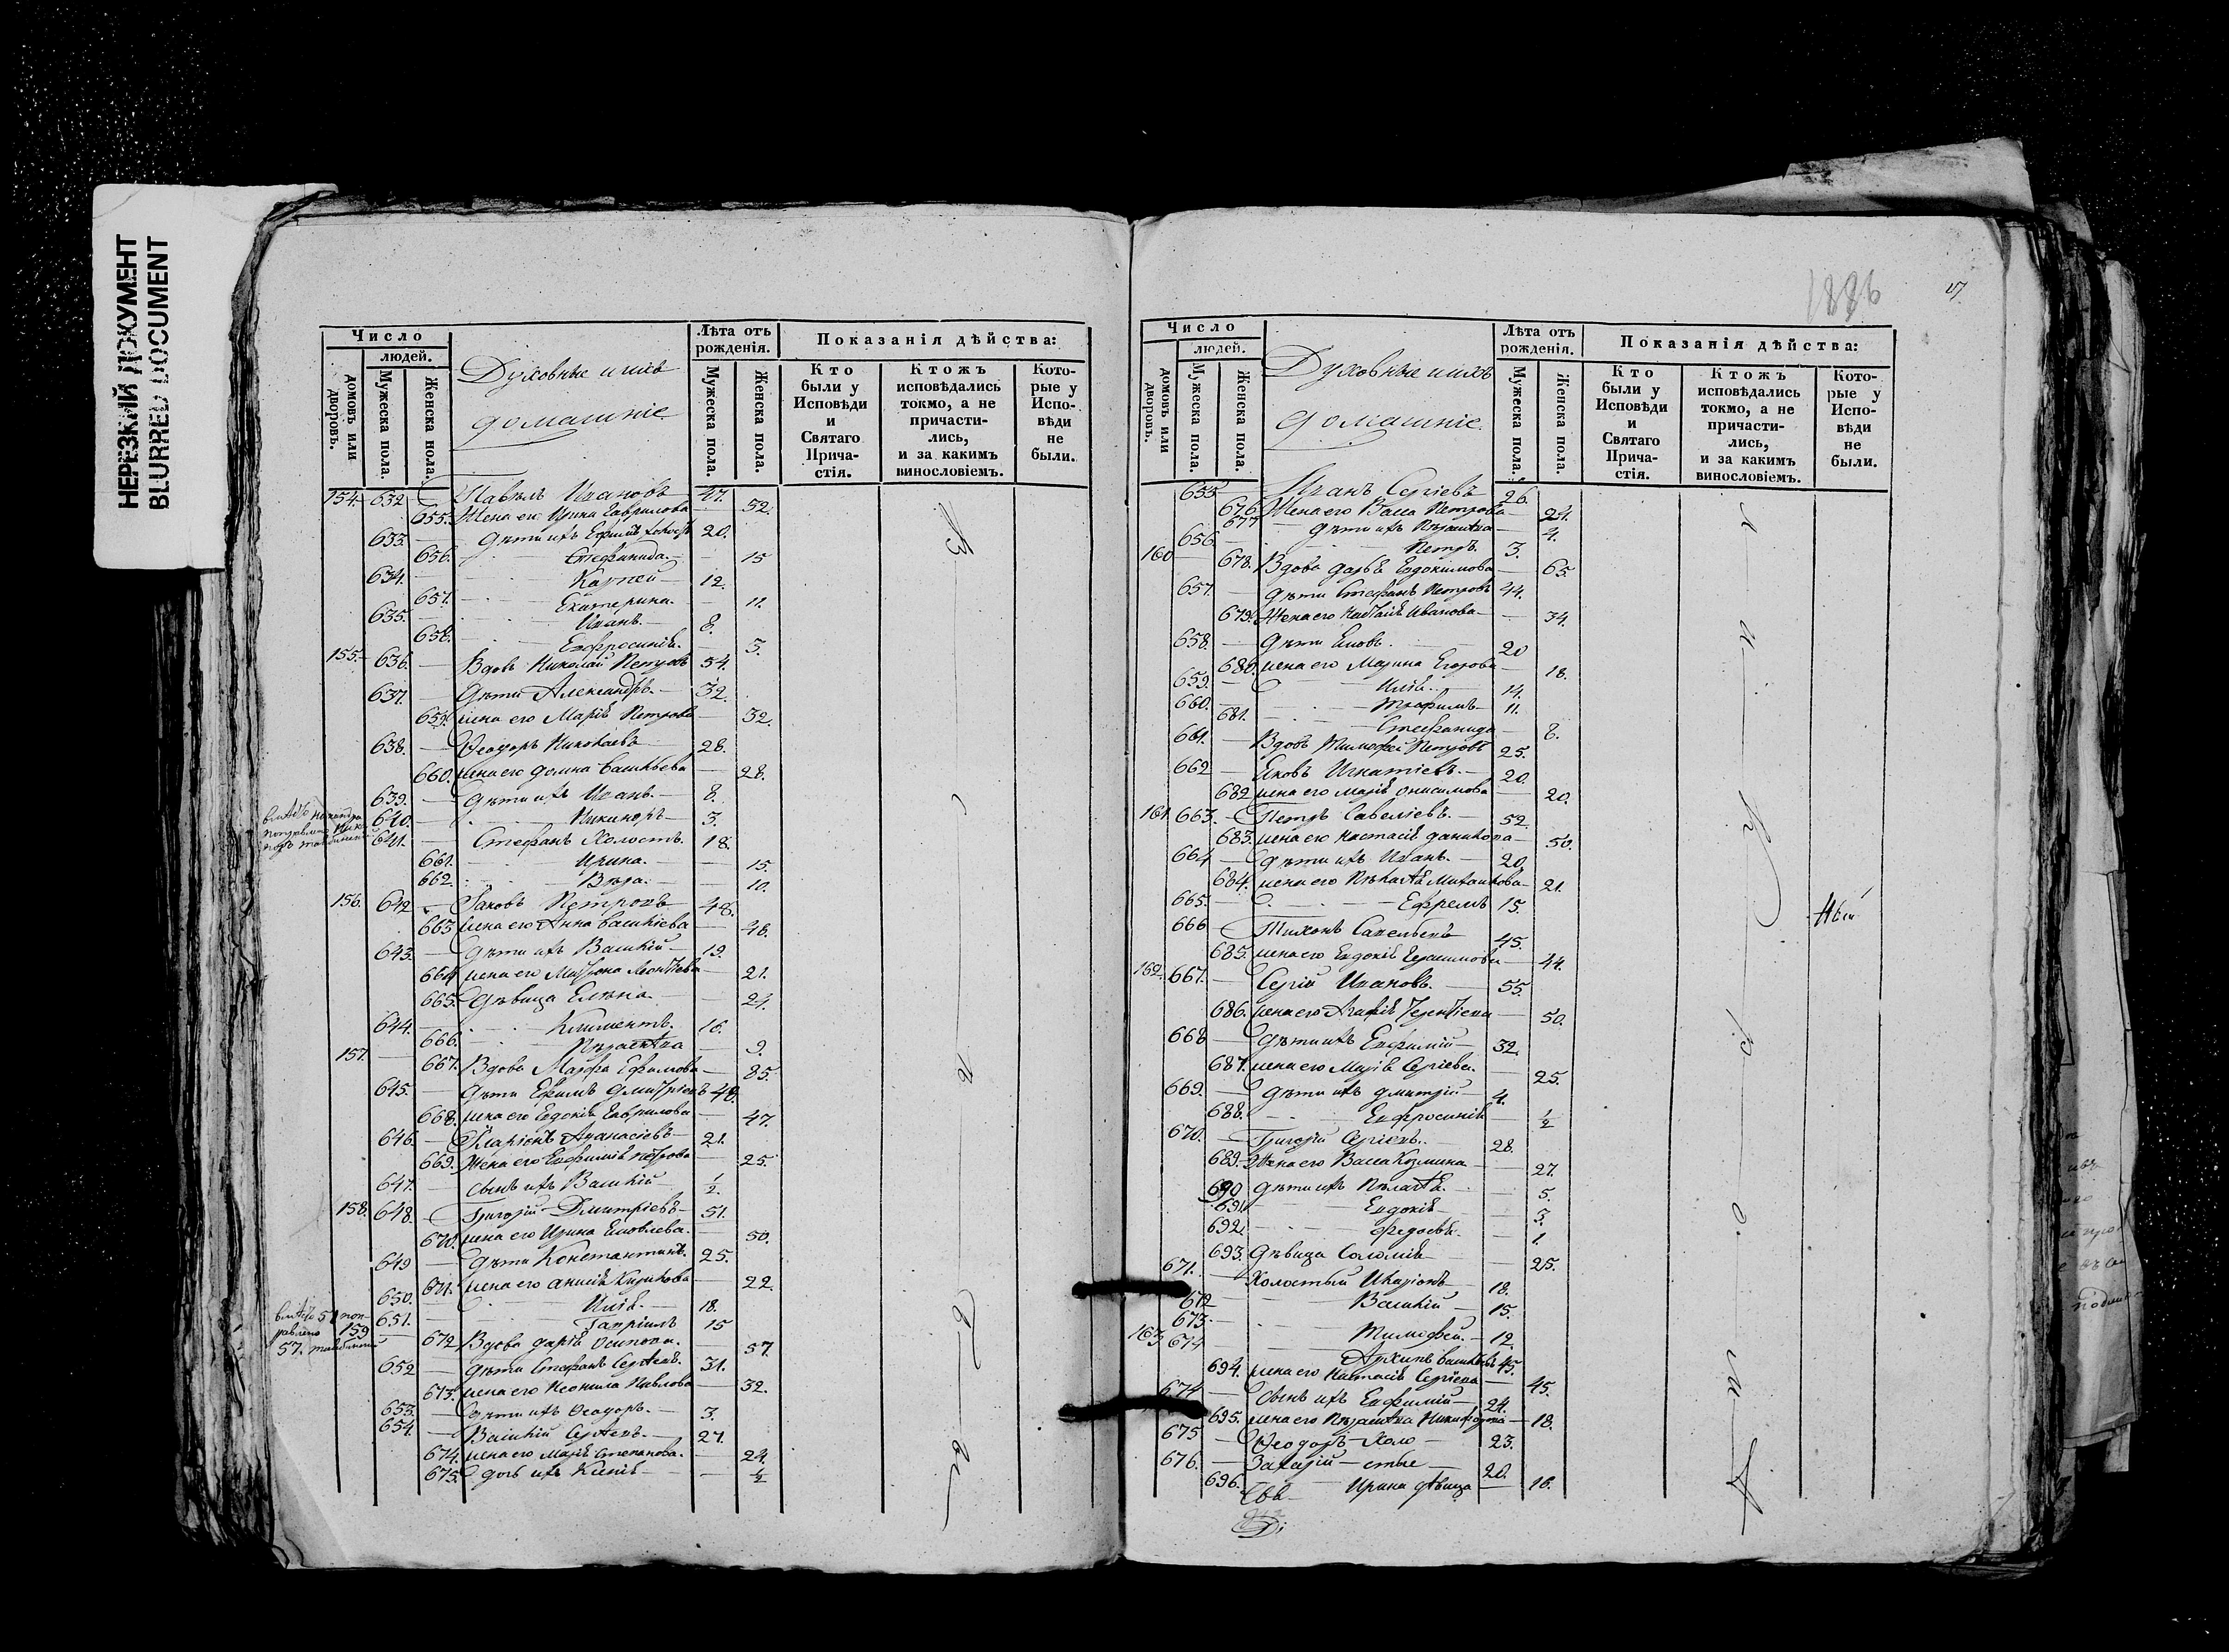 НЕРЕЗКИЙ ДОКУМЕНТ
BLURRED DOCUMENT
Число
людей.
домовъ или дворовъ.
Мужеска пола.
Женска пола.
Духовные и ихъ
домашніе
Лѣта отъ рожденія.
Мужеска пола.
Женска пола.
Показанія дѣйства:
Кто были у Исповѣди и Святаго Прича- стія.
Ктожъ исповѣдались токмо, а не причасти- лись, и за какимъ винословіемъ.
Кото- рые у Испо- вѣди не были.
154. 632 — Павелъ Ивановъ 47.
655. Жена его Ирина Гаврилова — 52.
633. — дѣти ихъ Ефимъ 20.
656. Стефанида — 15
634. Карпей 12.
657. Екатерина — 11.
635. Иванъ — 8.
658. Евфросинія — 3.
155. 636. — Вдовъ Николай Петровъ 54.
637. — дѣти Александръ — 32.
659. жена его Марія Петрова — 32.
638. — Ѳеодоръ Николаевъ 28.
660. жена его Домна Васильева — 28.
639. — дѣти ихъ Иванъ — 8.
640. — Никиноръ — 3.
641. — Стефанъ Холостъ. 18.
661. Ирина. — 15.
662. Вѣра. — 10.
156. 642 — Іаковъ Петровъ 48.
663 жена его Анна Васильева — 46.
643. — дѣти ихъ Василій — 19.
664 жена его Матрона Леонтіева — 21.
665. дѣвица Елена — 24.
644. — Климентъ. 16.
666. Параскева — 9.
157. — 667. Вдова Марфа Ефимова — 85.
645. — дѣти Ефимъ Дмитріевъ 48.
668. жена его Евдокія Гаврилова — 47.
646. — Иларіонъ Аѳанасіевъ — 21.
669. Жена его Евфимія Петрова — 25.
647. — сынъ ихъ Василій — ½.
158. 648. — Григорій Дмитріевъ — 51.
670. жена его Ирина Яковлева — 50.
649 — дѣти Константинъ. 25.
671. жена его Анисія Кирилова — 22.
650. Илія — 18.
651. — Гавріилъ 15
159 — 672 Вдова Дарія Осипова. — 57.
652 — дѣти Стефанъ Сергѣевъ. 31.
673. жена его Неонила Павлова — 32.
653. — дѣти ихъ Ѳеодоръ. — 3.
654. — Василій Сергѣевъ. — 27.
674. жена его Марія Степанова. — 24.
675. дочь ихъ Ксенія — ½
1886
Число
людей.
домовъ или дворовъ.
Мужеска пола.
Женска пола.
Духовные и ихъ
домашніе
Лѣта отъ рожденія.
Мужеска пола.
Женска пола.
Показанія дѣйства:
Кто были у Исповѣди и Святаго Прича- стія.
Ктожъ исповѣдались токмо, а не причасти- лись, и за какимъ винословіемъ.
Кото- рые у Испо- вѣди не были.
655 — Иванъ Сергіевъ 26.
676. Жена его Васса Петрова — 24.
677 дѣти ихъ Параскева — 4.
656. — Петръ. 3.
160 678. Вдова Дарья Евдокимова — 65.
657. — дѣти Стефанъ Петровъ 44.
679. Жена его Наталія Иванова — 34.
658. — дѣти Яковъ. 20
680. жена его Марина Егорова — 18.
659. — Илія. 14.
660. — Трофимъ — 11.
681. Стефанида — 8.
661. — Вдовъ Тимофей Петровъ 25.
662 — Яковъ Игнатіевъ. — 20.
682 жена его Марія Онисимова — 20.
161. 663. — Петръ Савеліевъ. — 52.
683. жена его Настасія Данилова — 50.
664 — дѣти ихъ Иванъ. — 20.
684. жена его Пелагѣя Михаилова — 21.
665. — Ефремъ 15.
666 — Тихонъ Савельевъ 45.
685. жена его Евдокія Герасимова — 44.
162. 667. — Сергій Ивановъ. 55.
686. жена его Агафія Терентіева — 50.
668 — дѣти ихъ Евфимій — 32.
687. жена его Марія Сергіева. — 25.
669. — дѣти ихъ Дмитрій — 4.
688. Евфросинія — ½
670. — Григорій Сергіевъ. 28.
689. Жена его Васса Козмина — 27.
690 дѣти ихъ Пелагѣя. — 5.
691. Евдокія — 3.
692. Ѳедосья. — 1.
693. дѣвица Соломія — 25.
671. — Холостый Иларіонъ 18.
672 Василій — 15.
673. Тимофей. — 12.
163 674 Архипъ Васильевъ 45.
694. жена его Настасія Сергіева — 45.
674 — сынъ ихъ Евфимій — 24.
695. жена его Параскева Никифорова — 18.
675 — Ѳеодоръ — Холо 23.
676. — Захарій — стые 20.
696. Ирина дѣвица — 16.